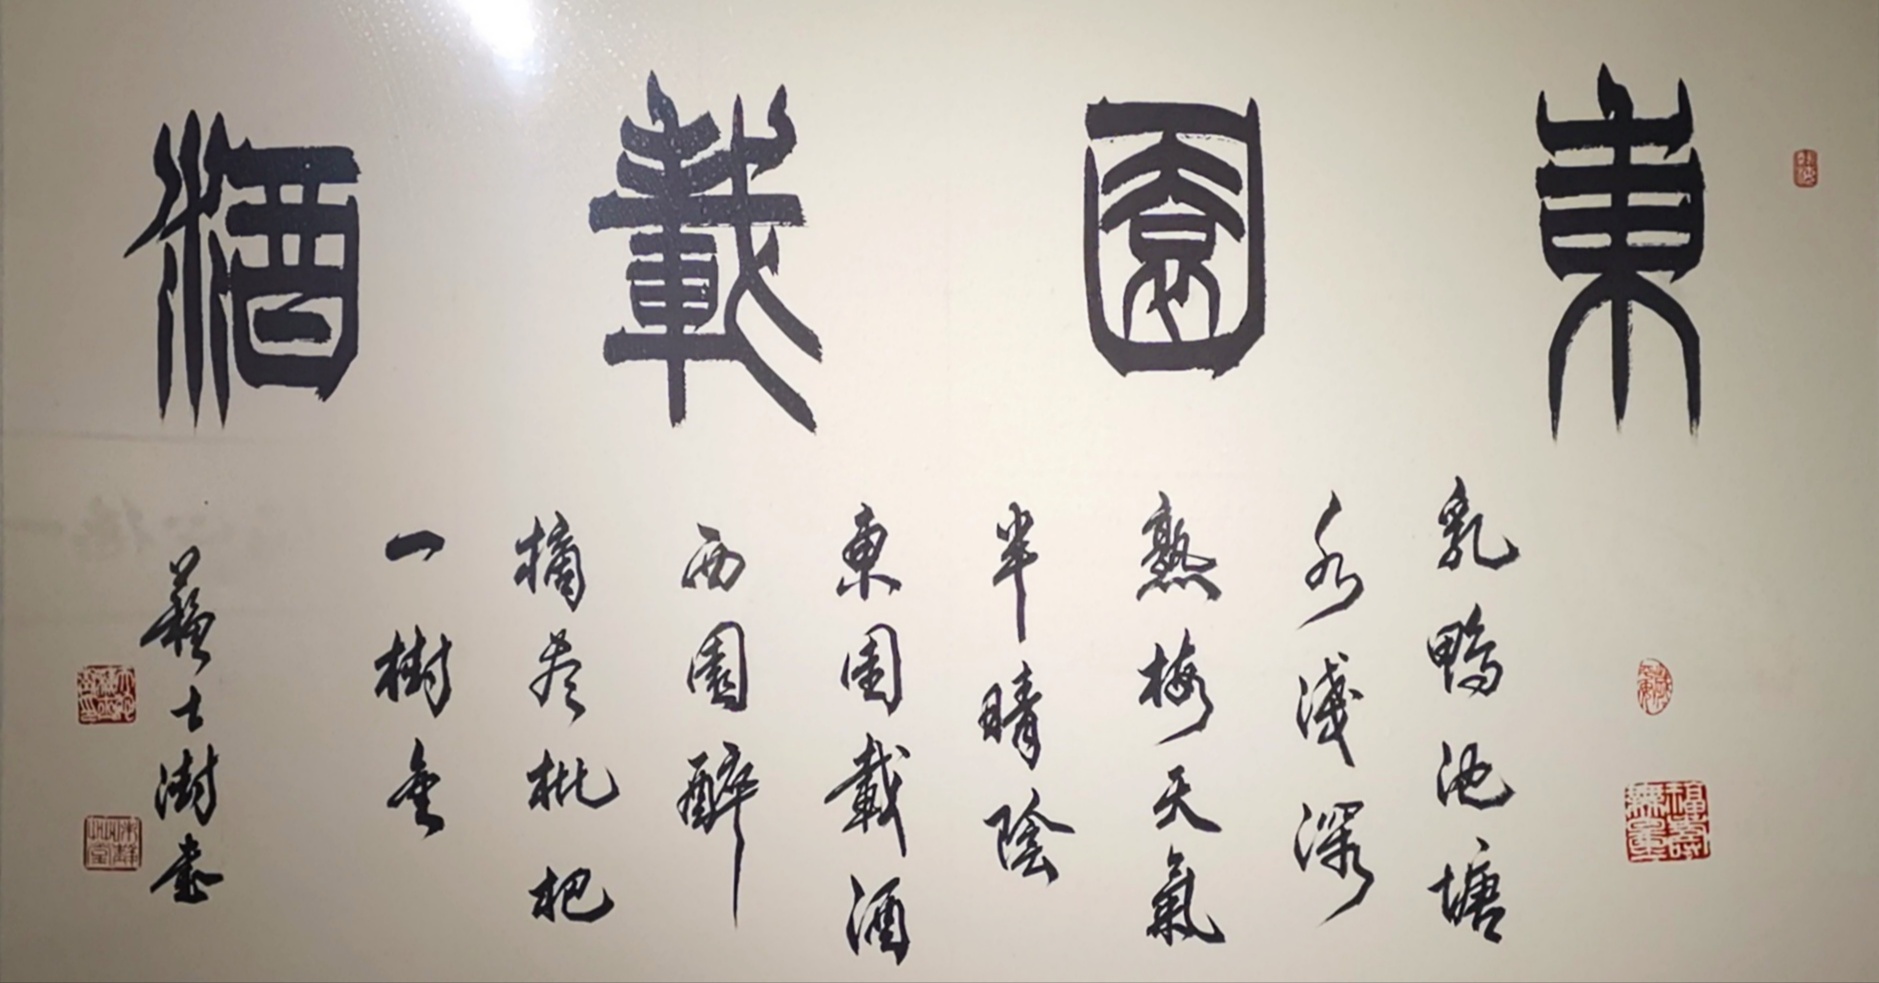 東園載酒
乳鴨池塘
水淺深
熟梅天氣
半晴陰
東園載酒
西園醉
摘尽枇杷
一樹金
蘇士澍書
福壽無量